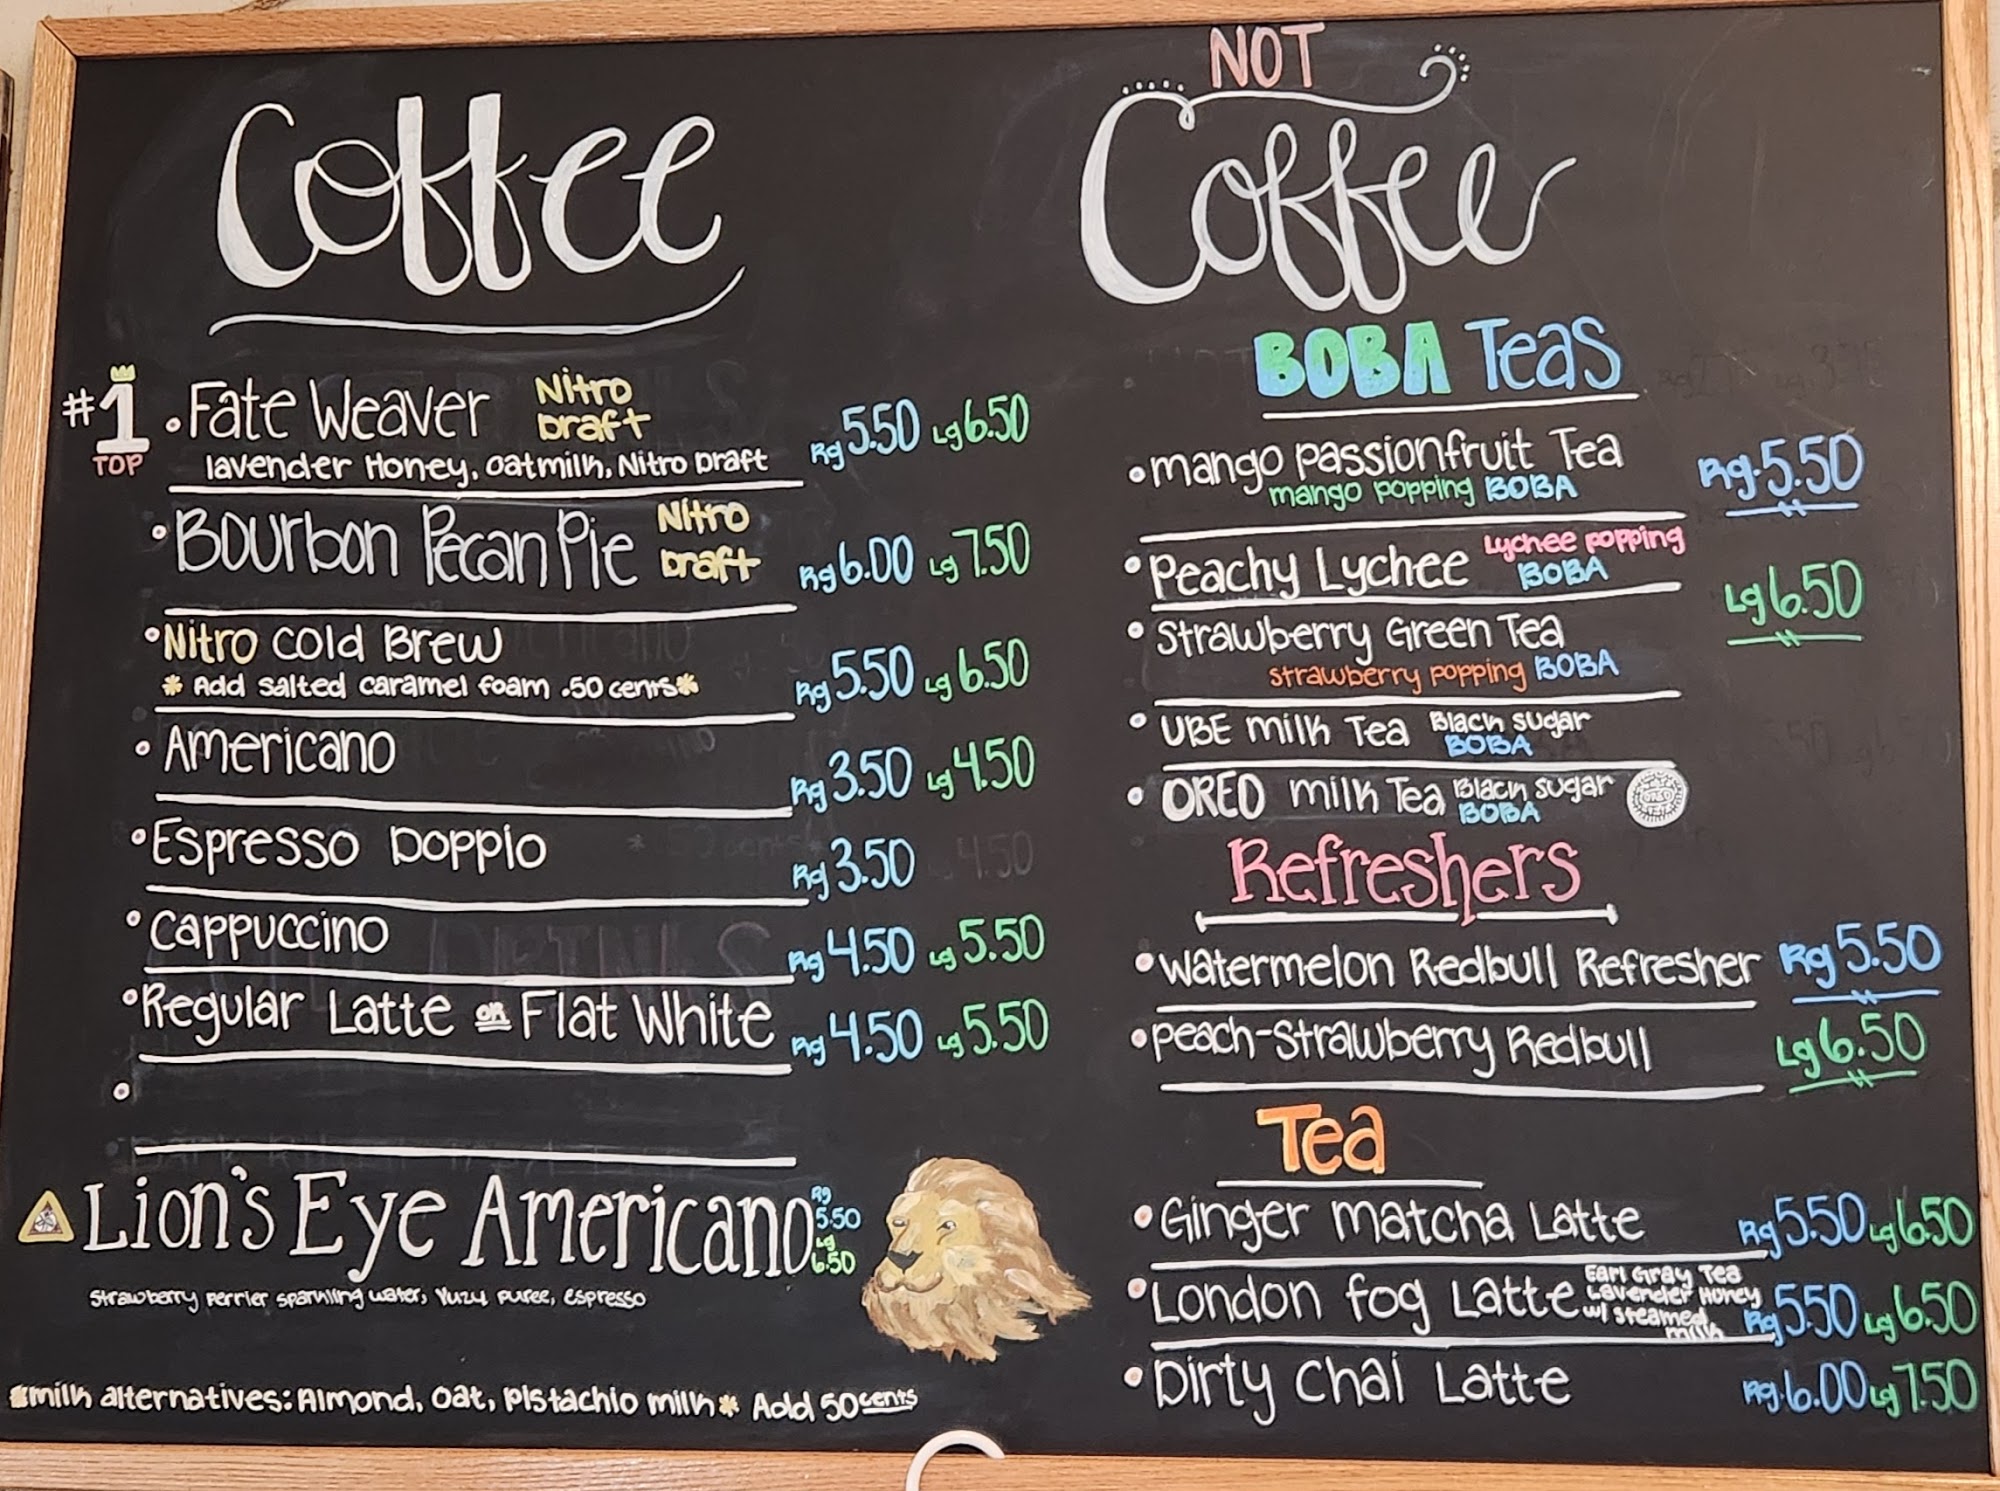 Coffee
#1 TOP
Fate Weaver Nitro Draft Rg 5.50 Lg 6.50
lavender Honey, oatmilk, Nitro Draft
Bourbon Pecan Pie Nitro Draft Rg 6.00 Lg 7.50
Nitro Cold Brew Rg 5.50 Lg 6.50
* Add salted caramel foam .50 cents*
Americano Rg 3.50 Lg 4.50
Espresso Doppio Rg 3.50
Cappuccino Rg 4.50 Lg 5.50
Regular Latte or Flat White Rg 4.50 Lg 5.50
Lion's Eye Americano Rg 5.50 Lg 6.50
Strawberry perrier sparkling water, Yuzu puree, espresso
*milk alternatives: Almond, oat, pistachio milk* Add 50 cents
NOT
Coffee
BOBA Teas
mango passionfruit Tea Rg. 5.50
mango popping BOBA
Peachy Lychee Lychee popping BOBA Lg 6.50
Strawberry Green Tea
strawberry popping BOBA
UBE milk Tea Black sugar BOBA
OREO milk Tea Black sugar BOBA
Refreshers
Watermelon Redbull Refresher Rg 5.50
Peach-Strawberry Redbull Lg 6.50
Tea
Ginger matcha Latte Rg 5.50 Lg 6.50
London fog Latte Earl Gray Tea Lavender Honey w/ steamed milk Rg 5.50 Lg 6.50
Dirty Chai Latte Rg. 6.00 Lg 7.50